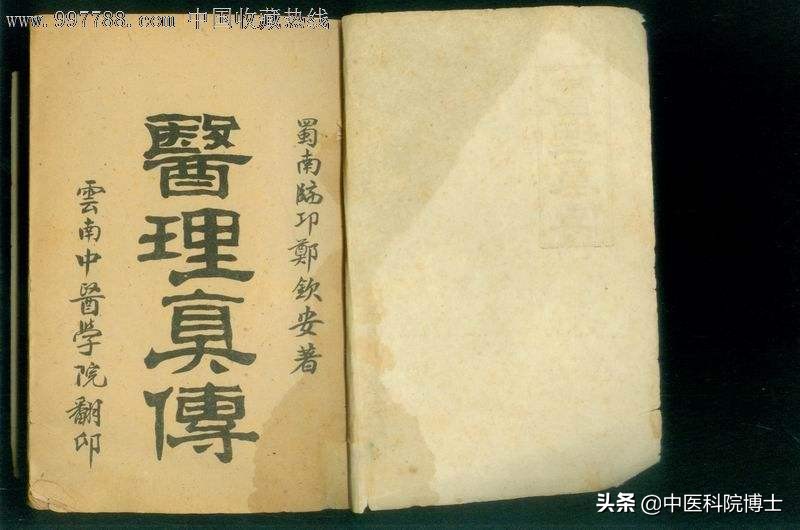 www.997788.com 中国收藏热线
蜀南臨邛鄭欽安著
醫理真傳
雲南中醫學院翻印
头条 @中医科院博士